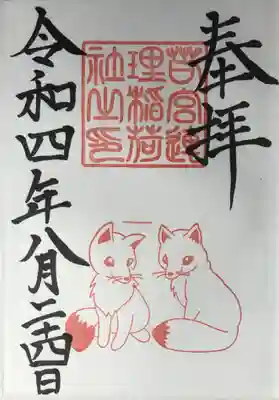 奉拝
若宮道
理稲荷
社之印
令和四年八月二十四日